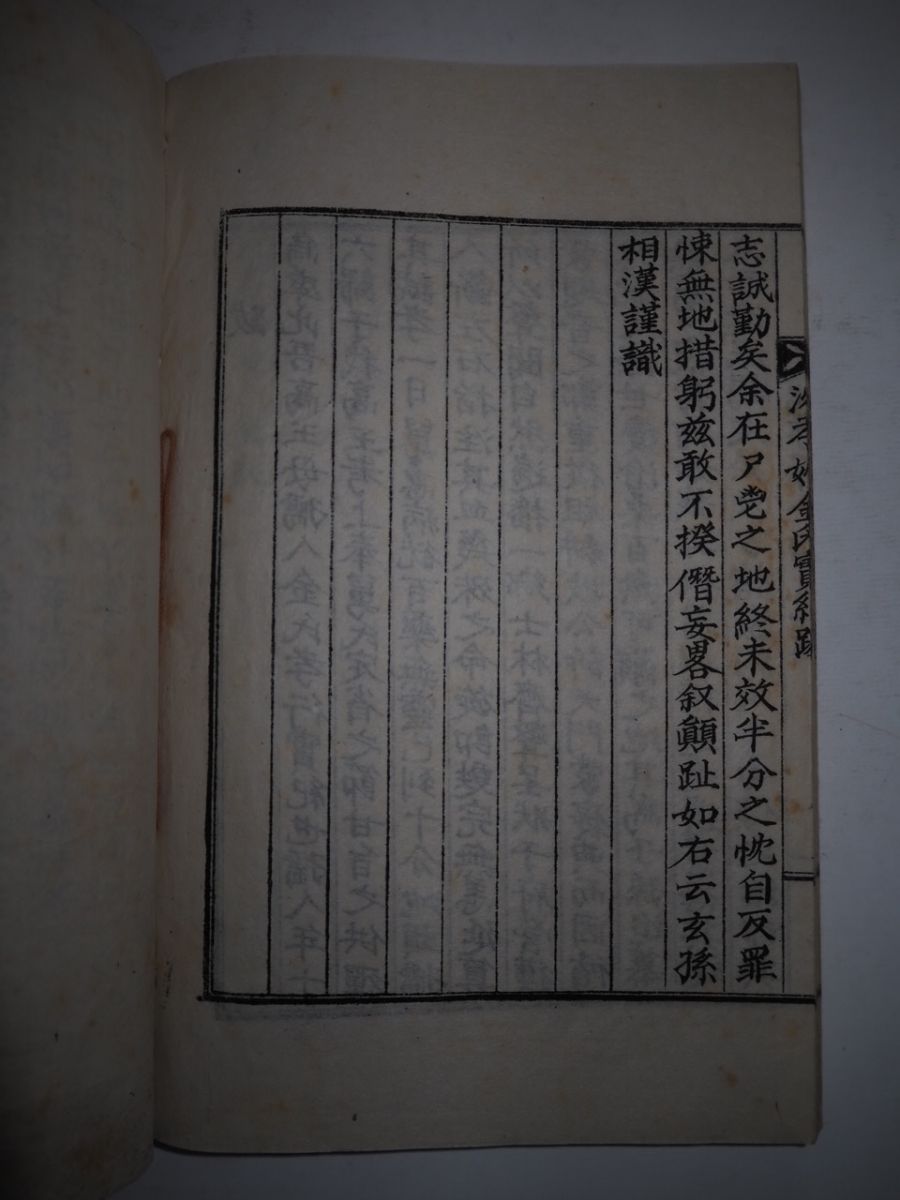 志誠勤矣余在尸㞼之地終未效半分之忱自反罪
悚無地措躬玆敢不揆僭妄畧叙顚趾如右云玄孫
相漢謹識
孝婦金氏實紀跋